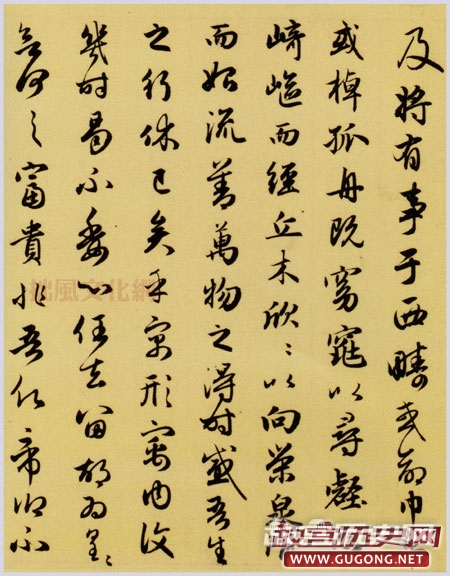 及將有事于西疇或命巾
或棹孤舟既窈窕以尋壑
崎嶇而經丘木欣〻以向榮泉
而始流善萬物之得時感吾生
之行休已矣乎寓形寓內復
幾時曷不委心任去留胡為遑〻
欲何之富貴非吾願帝鄉不
拙風文化網
故宫历史网
WWW.GUGONG.NET